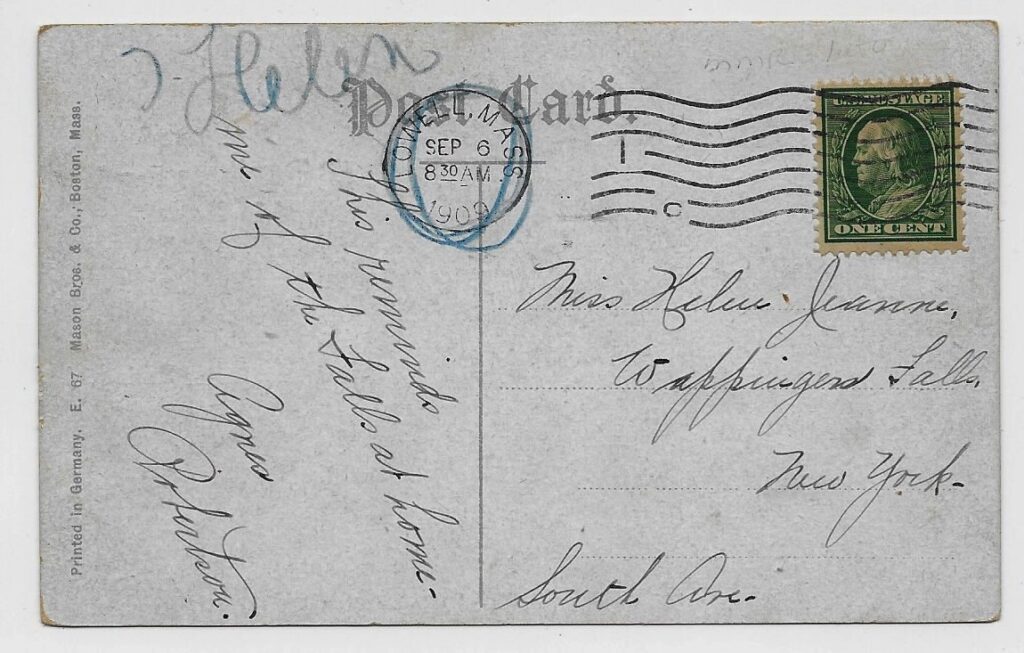 Helen
Post Card.
LOWELL, MASS
SEP 6
8 30 AM
1909
U.S. POSTAGE
ONE CENT
This reminds
me of the Falls at home-
Agnes
Robertson.
Miss Helen Jeanne,
Wappingers Falls,
New York-
South Ave.
Printed in Germany. E. 67 Mason Bros. & Co., Boston, Mass.